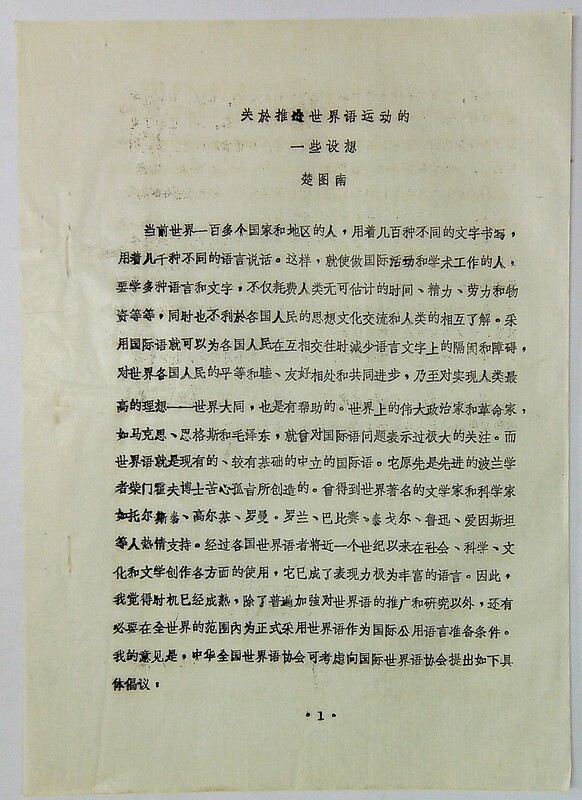 关於推进世界语运动的
一些设想
楚图南
当前世界一百多个国家和地区的人，用着几百种不同的文字书写，
用着几千种不同的语言说话。这样，就使做国际活动和学术工作的人，
要学多种语言和文字，不仅耗费人类无可估计的时间、精力、劳力和物
资等等，同时也不利於各国人民的思想文化交流和人类的相互了解。采
用国际语就可以为各国人民在互相交往时减少语言文字上的隔阂和障碍，
对世界各国人民的平等和睦、友好相处和共同进步，乃至对实现人类最
高的理想——世界大同，也是有帮助的。世界上的伟大政治家和革命家，
如马克思、恩格斯和毛泽东，就曾对国际语问题表示过极大的关注。而
世界语就是现有的、较有基础的中立的国际语。它原先是先进的波兰学
者柴门霍夫博士苦心孤旨所创造的。曾得到世界著名的文学家和科学家
如托尔斯泰、高尔基、罗曼。罗兰、巴比赛、泰戈尔、鲁迅、爱因斯坦
等人热情支持。经过各国世界语者将近一个世纪以来在社会、科学、文
化和文学创作各方面的使用，它已成了表现力极为丰富的语言。因此，
我觉得时机已经成熟，除了普遍加強对世界语的推广和研究以外，还有
必要在全世界的范围內为正式采用世界语作为国际公用语言准备条件。
我的意见是，中华全国世界语协会可考虑向国际世界语协会提出如下具
体倡议：
·1·